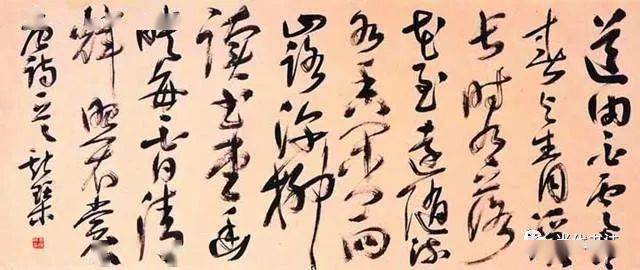 道由白云尽
春与青溪
长时有落
花至远随流
水香闲门向
山路深柳
读书堂幽
映每白日清
辉照衣裳
唐诗